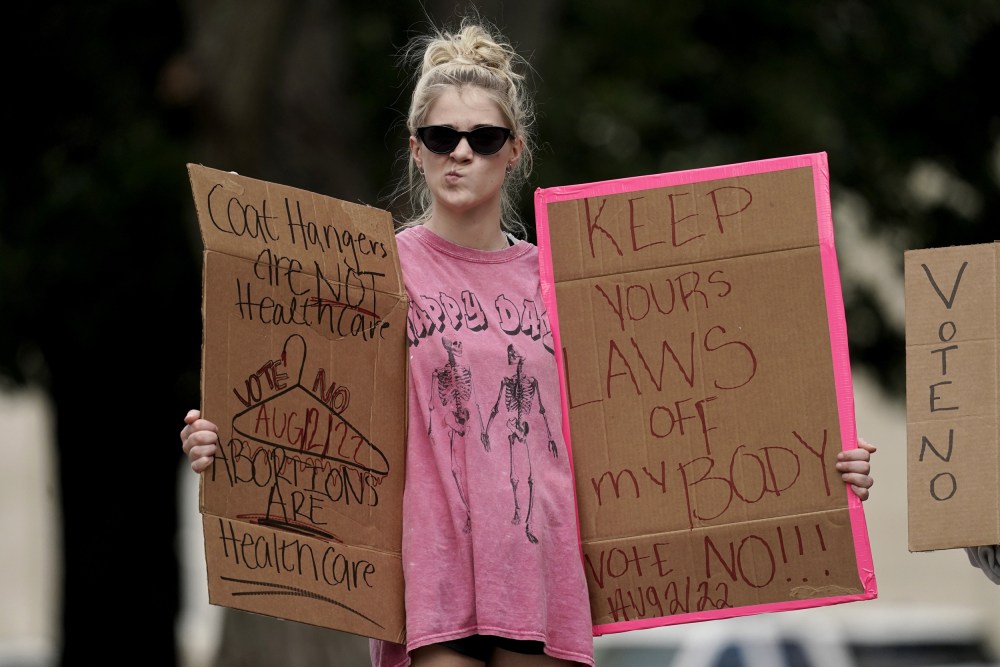 Coat Hangers
are NOT
Healthcare
VOTE NO
AUG/2/22
ABORTIONS
ARE
Healthcare
HAPPY DA
KEEP
YOURS
LAWS
OFF
my BODY
VOTE NO!!!
AUG 2/22
VOTE
NO